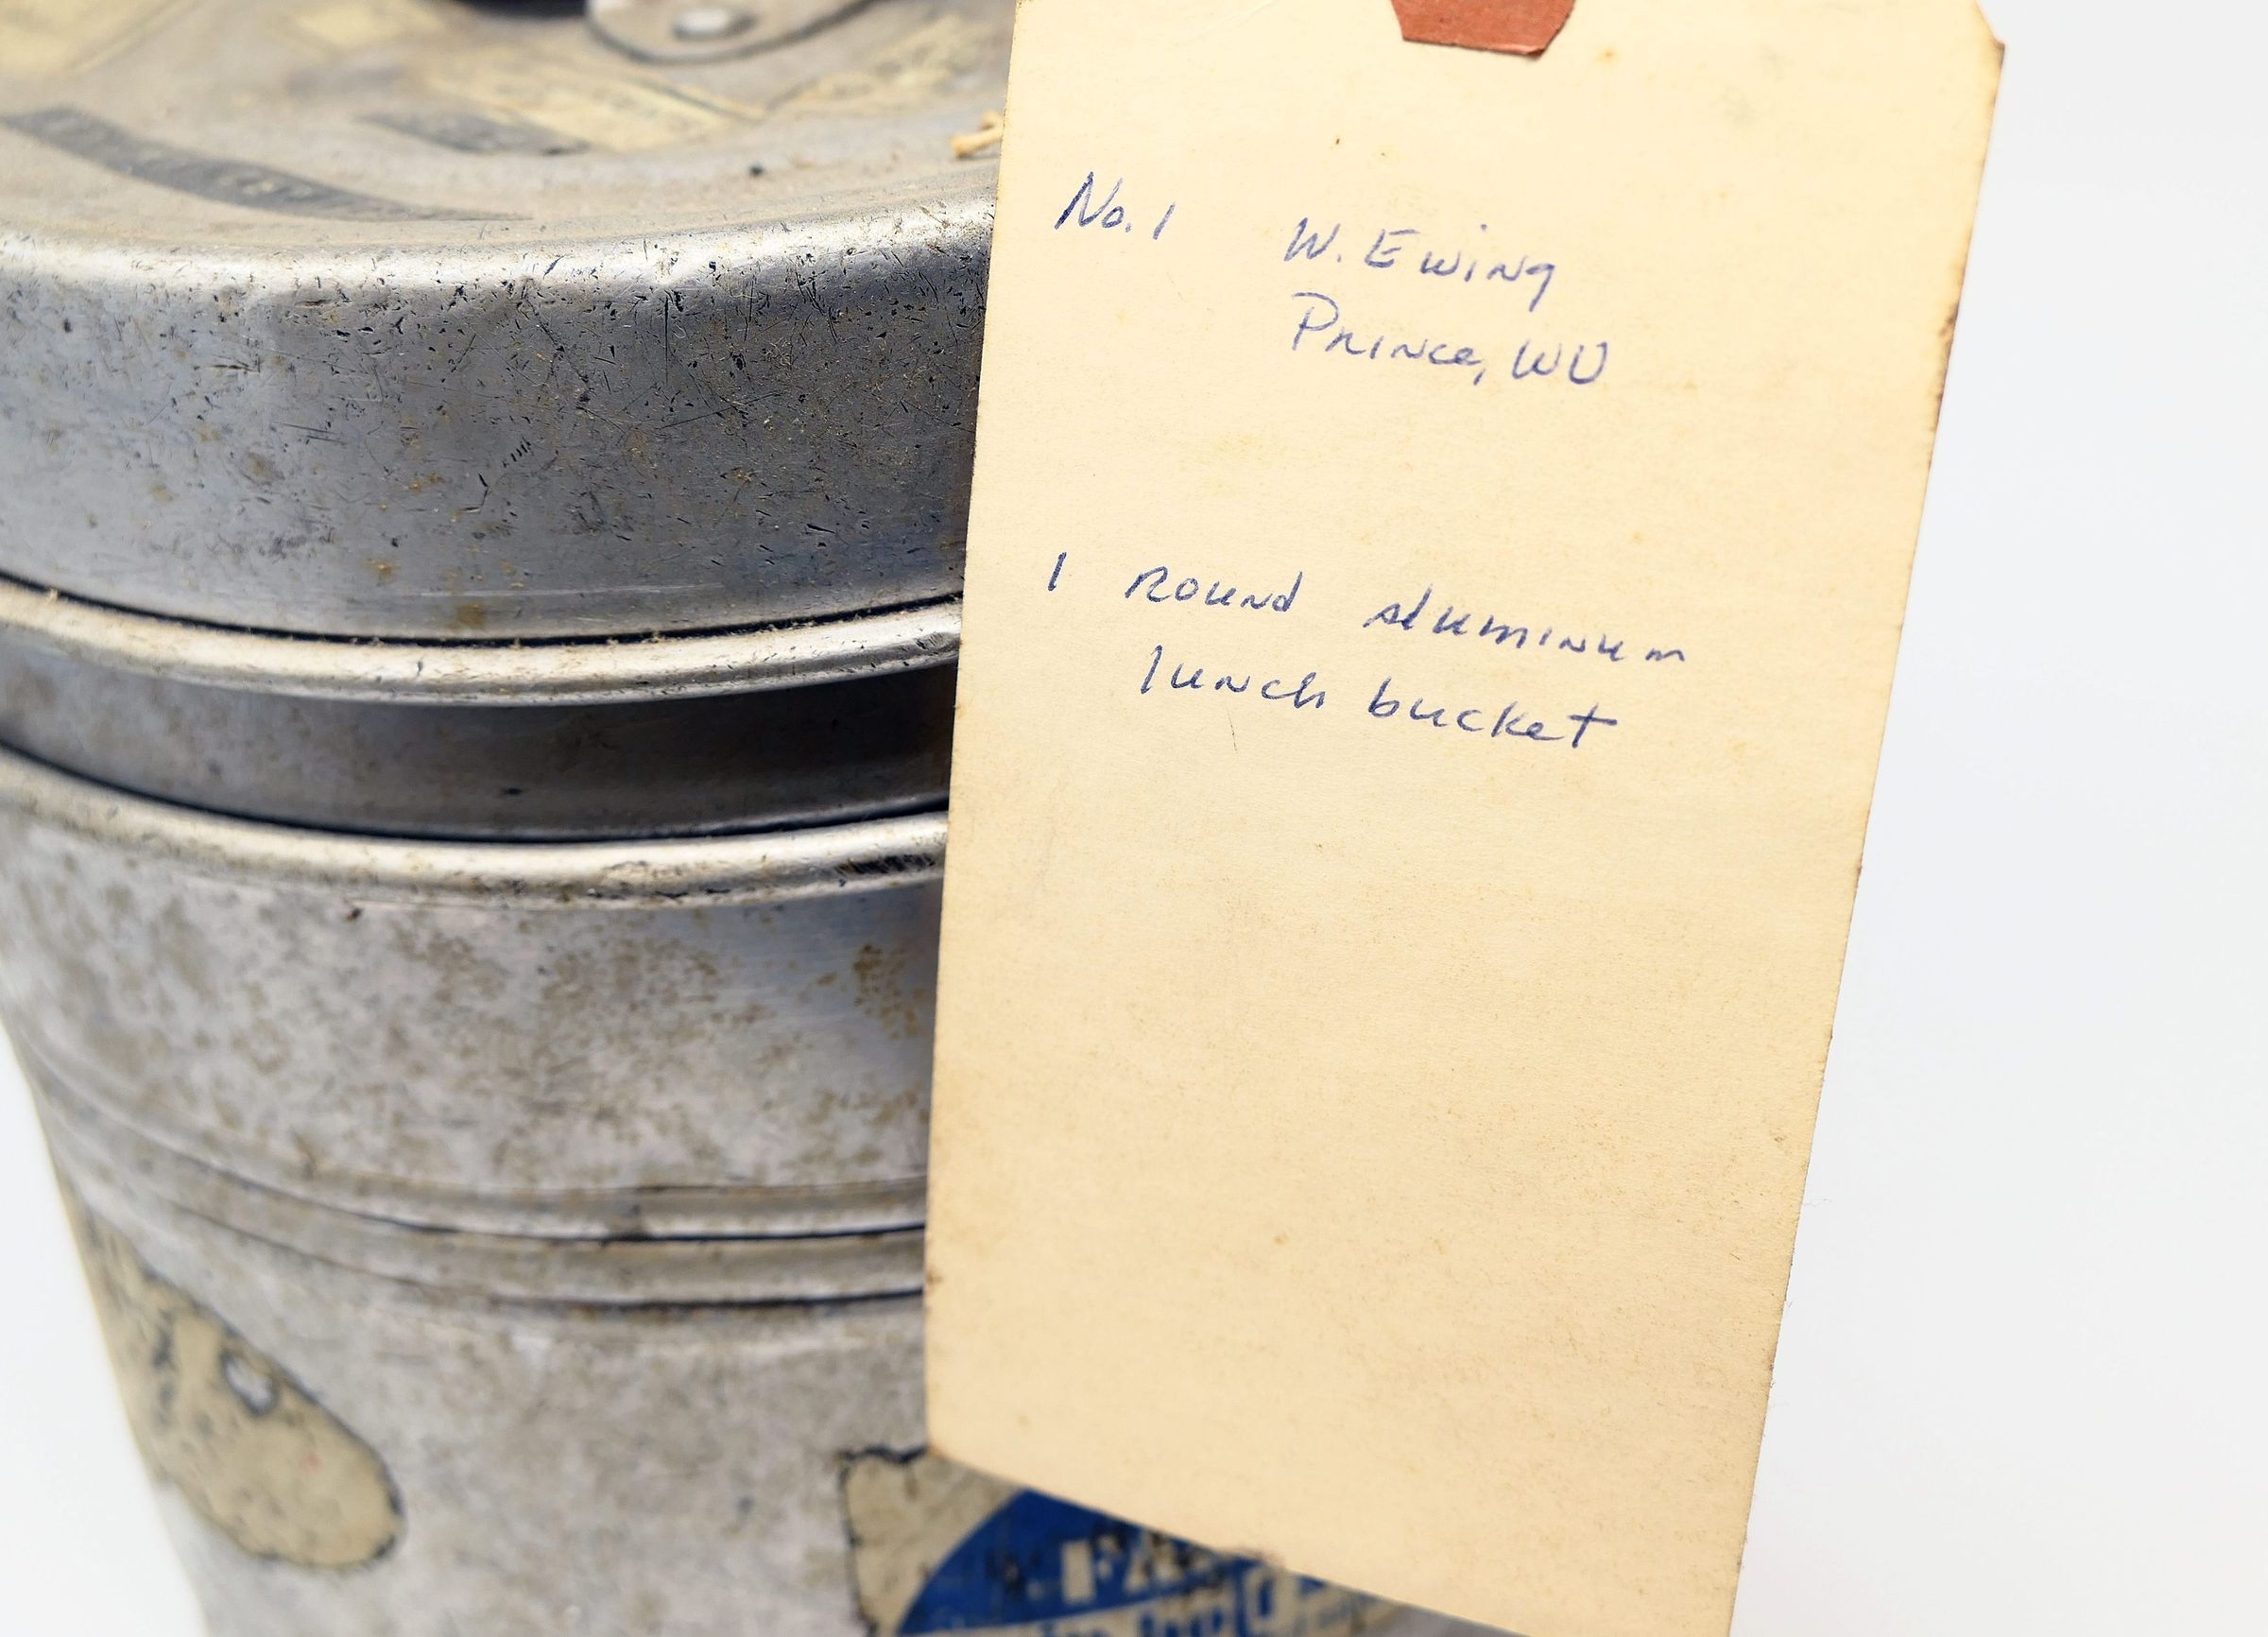 No. 1 W. Ewing
Prince, WV
1 round aluminum
lunch bucket